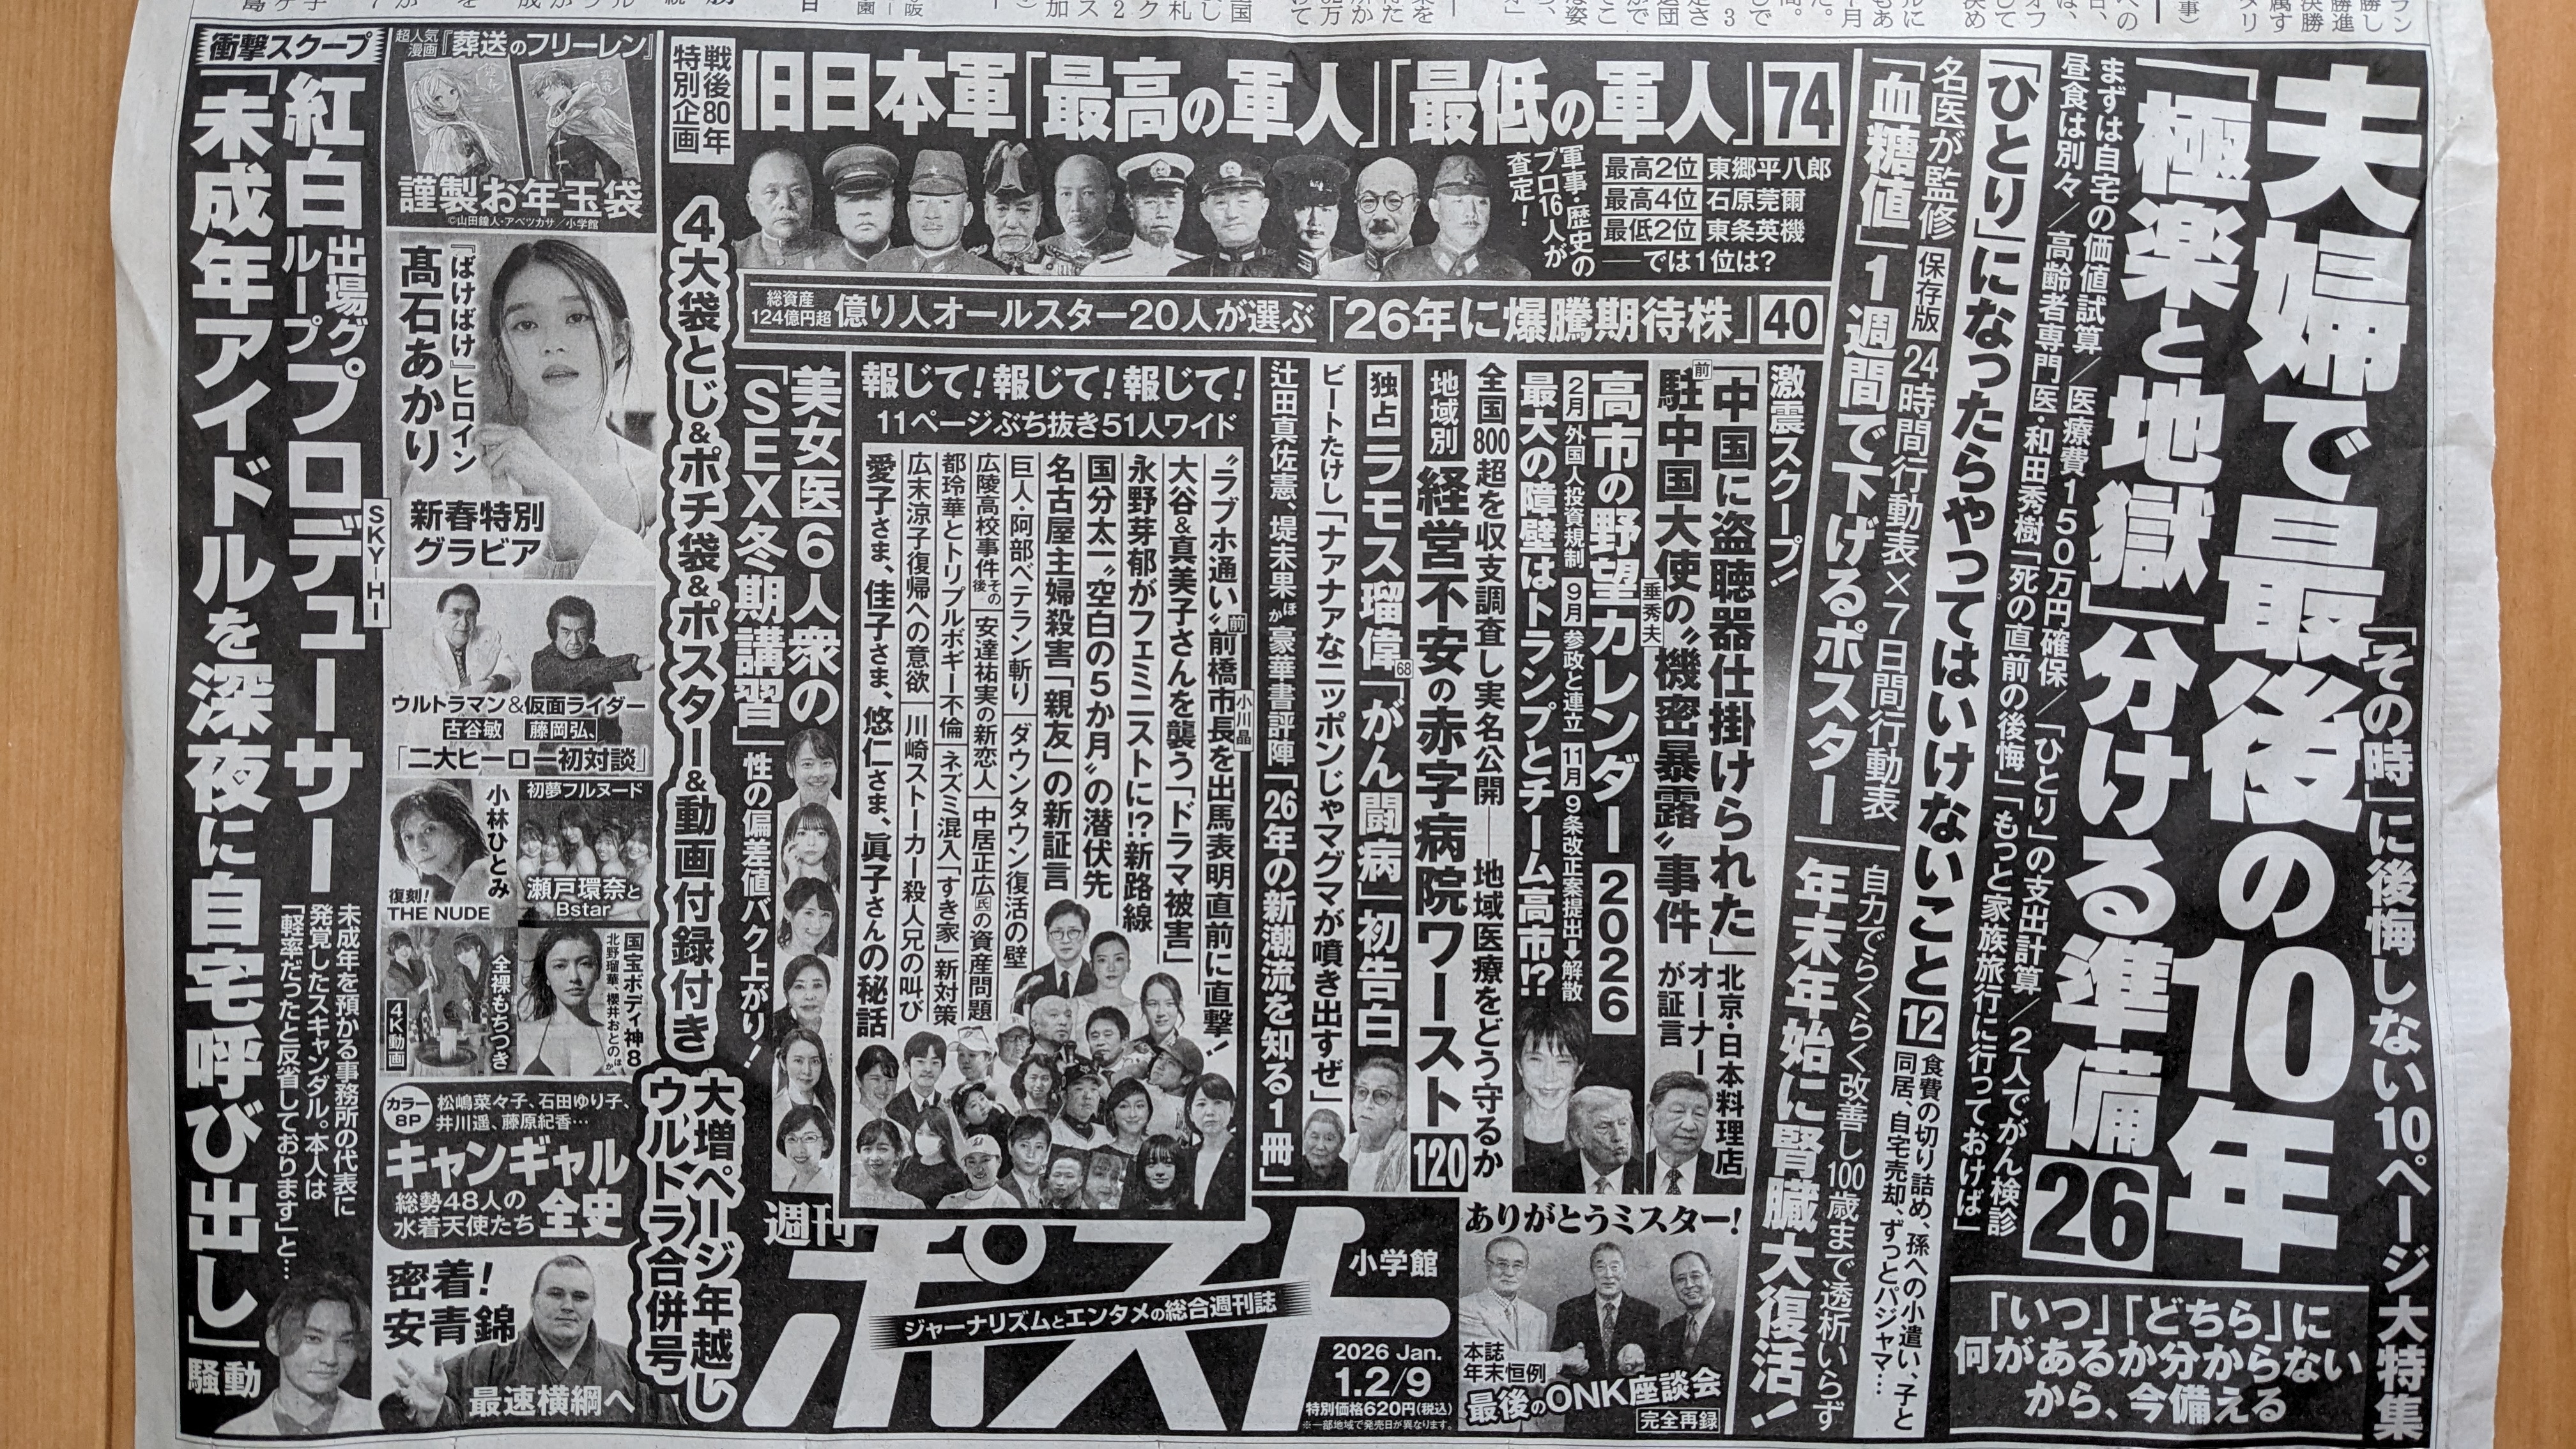 「その時」に後悔しない10ページ大特集
夫婦で最後の10年
「極楽と地獄」分ける準備26
まずは自宅の価値試算/医療費150万円確保/「ひとり」の支出計算/2人でがん検診
昼食は別々/高齢者専門医・和田秀樹「死の直前の後悔」「もっと家族旅行に行っておけば」
「いつ」「どちら」に
何があるか分からない
から、今備える
「ひとり」になったらやってはいけないこと12
食費の切り詰め、孫への小遣い、子と
同居、自宅売却、ずっとパジャマ…
名医が監修 保存版 24時間行動表×7日間行動表
「血糖値」1週間で下げるポスター
自力でらくらく改善し100歳まで透析いらず
年末年始に腎臓大復活!
戦後80年
特別企画
旧日本軍「最高の軍人」「最低の軍人」74
軍事・歴史の
プロ16人が
査定!
最高2位 東郷平八郎
最高4位 石原莞爾
最低2位 東条英機
――では1位は?
総資産
124億円超
億り人オールスター20人が選ぶ「26年に爆騰期待株」40
激震スクープ!
「中国に盗聴器仕掛けられた」
北京・日本料理店
オーナー
が証言
前駐中国大使の“機密暴露”事件
垂秀夫
高市の野望カレンダー2026
2月 外国人投資規制 9月 参政と連立 11月 9条改正案提出→解散
最大の障壁はトランプとチーム高市!?
全国800超を収支調査し実名公開――地域医療をどう守るか
地域別 経営不安の赤字病院ワースト120
独占 ラモス瑠偉68「がん闘病」初告白
ビートたけし「ナァナァなニッポンじゃマグマが噴き出すぜ」
辻田真佐憲、堤未果ほか豪華書評陣「26年の新潮流を知る1冊」
報じて!報じて!報じて!
11ページぶち抜き51人ワイド
“ラブホ通い”前前橋市長を出馬表明直前に直撃!
小川晶
大谷&真美子さんを襲う「ドラマ被害」
永野芽郁がフェミニストに!?新路線
国分太一“空白の5か月”の潜伏先
名古屋主婦殺害「親友」の新証言
巨人・阿部ベテラン斬り
ダウンタウン復活の壁
広陵高校事件その後
安達祐実の新恋人
中居正広氏の資産問題
都玲華とトリプルボギー不倫
ネズミ混入「すき家」新対策
広末涼子復帰への意欲
川崎ストーカー殺人兄の叫び
愛子さま、佳子さま、悠仁さま、眞子さんの秘話
美女医6人衆の
「SEX冬期講習」
性の偏差値バク上がり!
4大袋とじ&ポチ袋&ポスター&動画付録付き
大増ページ年越し
ウルトラ合併号
週刊
ポスト
ジャーナリズムとエンタメの総合週刊誌
小学館
2026 Jan.
1.2/9
特別価格620円(税込)
※一部地域で発売日が異なります。
ありがとうミスター!
本誌
年末恒例
最後のONK座談会
完全再録
超人気
漫画
『葬送のフリーレン』
謹製お年玉袋
©山田鐘人・アベツカサ/小学館
『ばけばけ』ヒロイン
髙石あかり
新春特別
グラビア
ウルトラマン&仮面ライダー
古谷敏 藤岡弘、
「二大ヒーロー初対談」
初夢フルヌード
瀬戸環奈と
Bstar
小林ひとみ
復刻!
THE NUDE
国宝ボディ神8
北野瑠華、櫻井おとのほか
全裸もちつき
4K動画
カラー
8P
松嶋菜々子、石田ゆり子、
井川遥、藤原紀香…
キャンギャル
総勢48人の
水着天使たち
全史
密着!
安青錦
最速横綱へ
衝撃スクープ
紅白出場グループプロデューサー
SKY-HI
「未成年アイドルを深夜に自宅呼び出し」騒動
未成年を預かる事務所の代表に
発覚したスキャンダル。本人は
「軽率だったと反省しております」と…